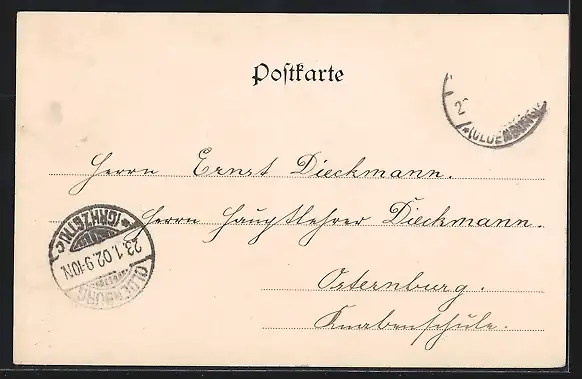 Postkarte
*(OLDENBURG
Herrn Ernst Dieckmann.
Herrn Hauptlehrer Dieckmann.
Osternburg.
Knabenschule.
OLDENBURG
23.1.02.9-10N
*(GRHZGTH.)C